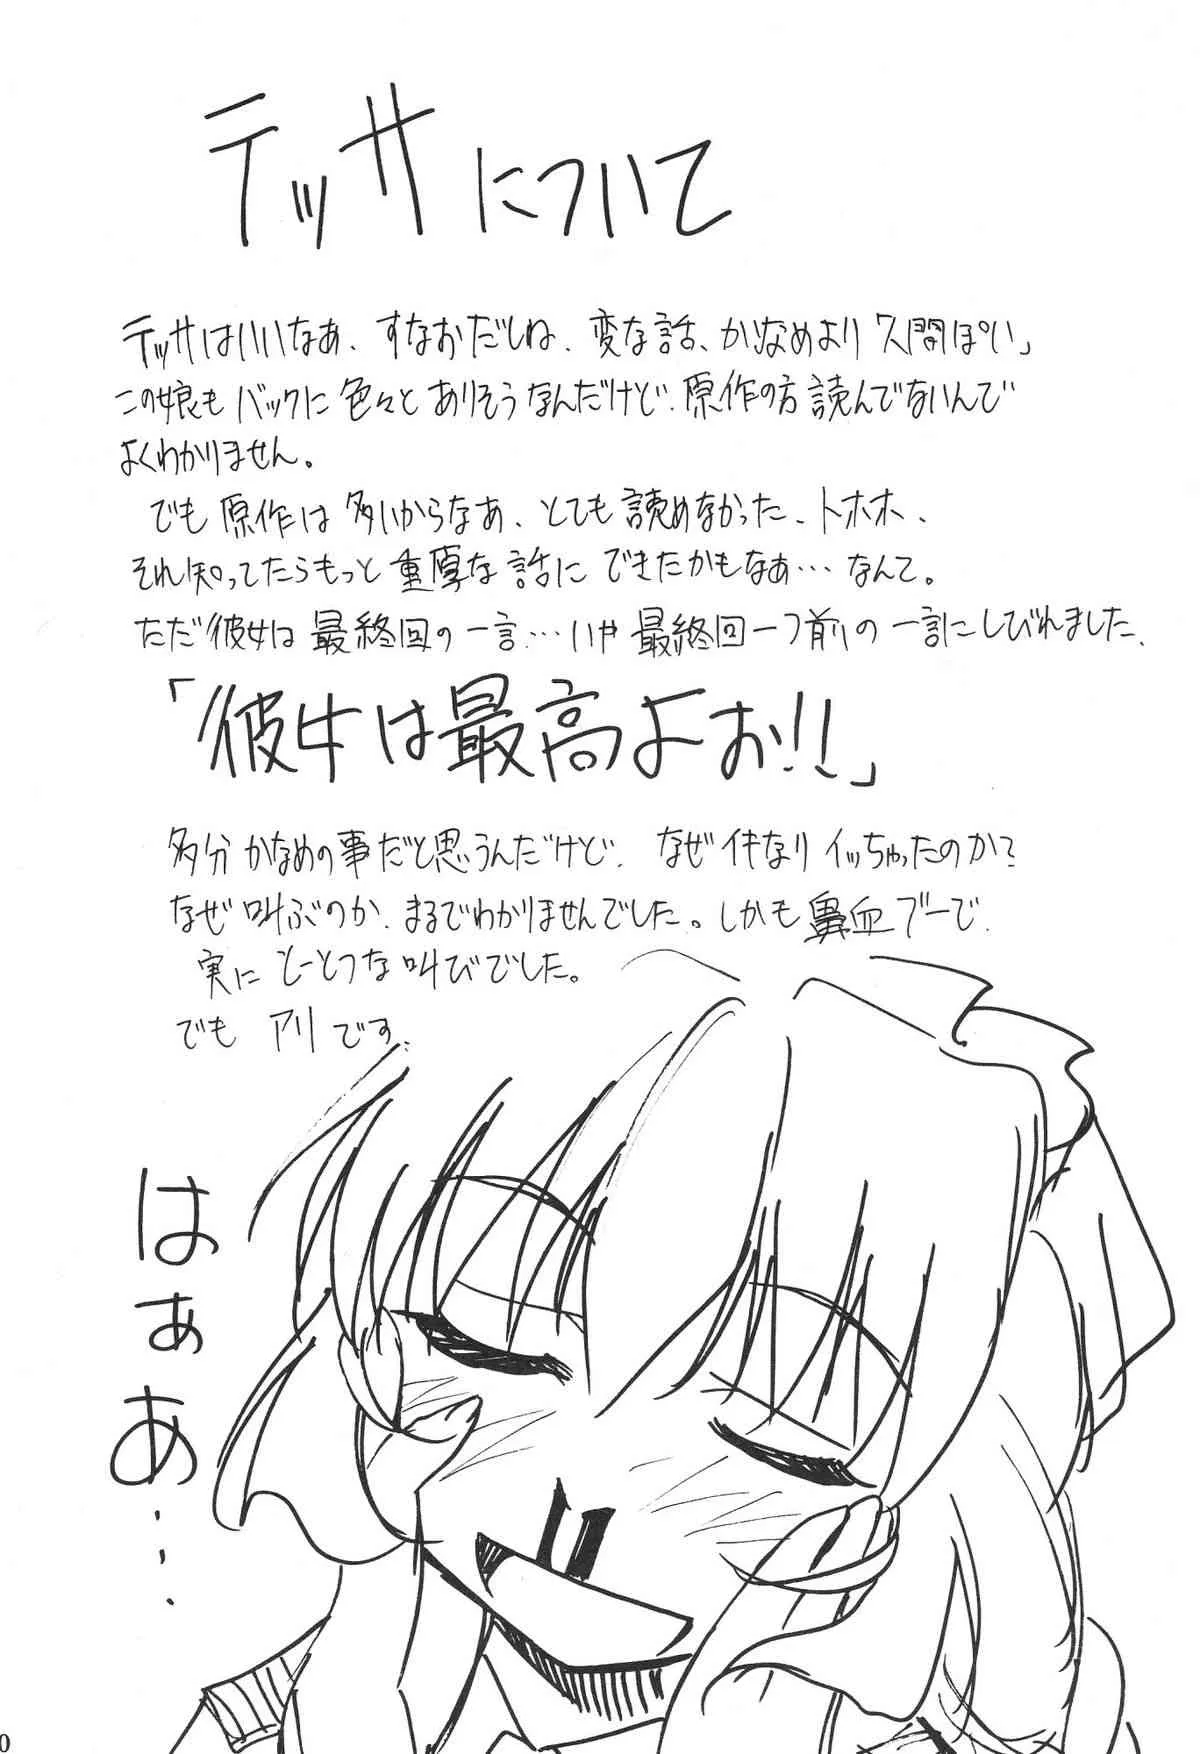 テッサについて
テッサはいいなあ、すなおだしね、変な話、かなめより人間ぽい」
この娘もバックに色々とありそうなんだけど、原作の方読んでないんで
よくわかりません。
でも原作は多いからなあ、とても読めなかった、トホホ、
それ知ってたらもっと重厚な話にできたかもなあ…なんて。
ただ彼女は最終回の一言…いや最終回一つ前の一言にしびれました、
「彼女は最高よぉ!!」
多分かなめの事だと思うんだけど、なぜイキなりイッちゃったのか?
なぜ叫ぶのか、まるでわかりませんでした。しかも鼻血ブーで、
実にとーとつな叫びでした。
でもアリです、
はぁあ…
0